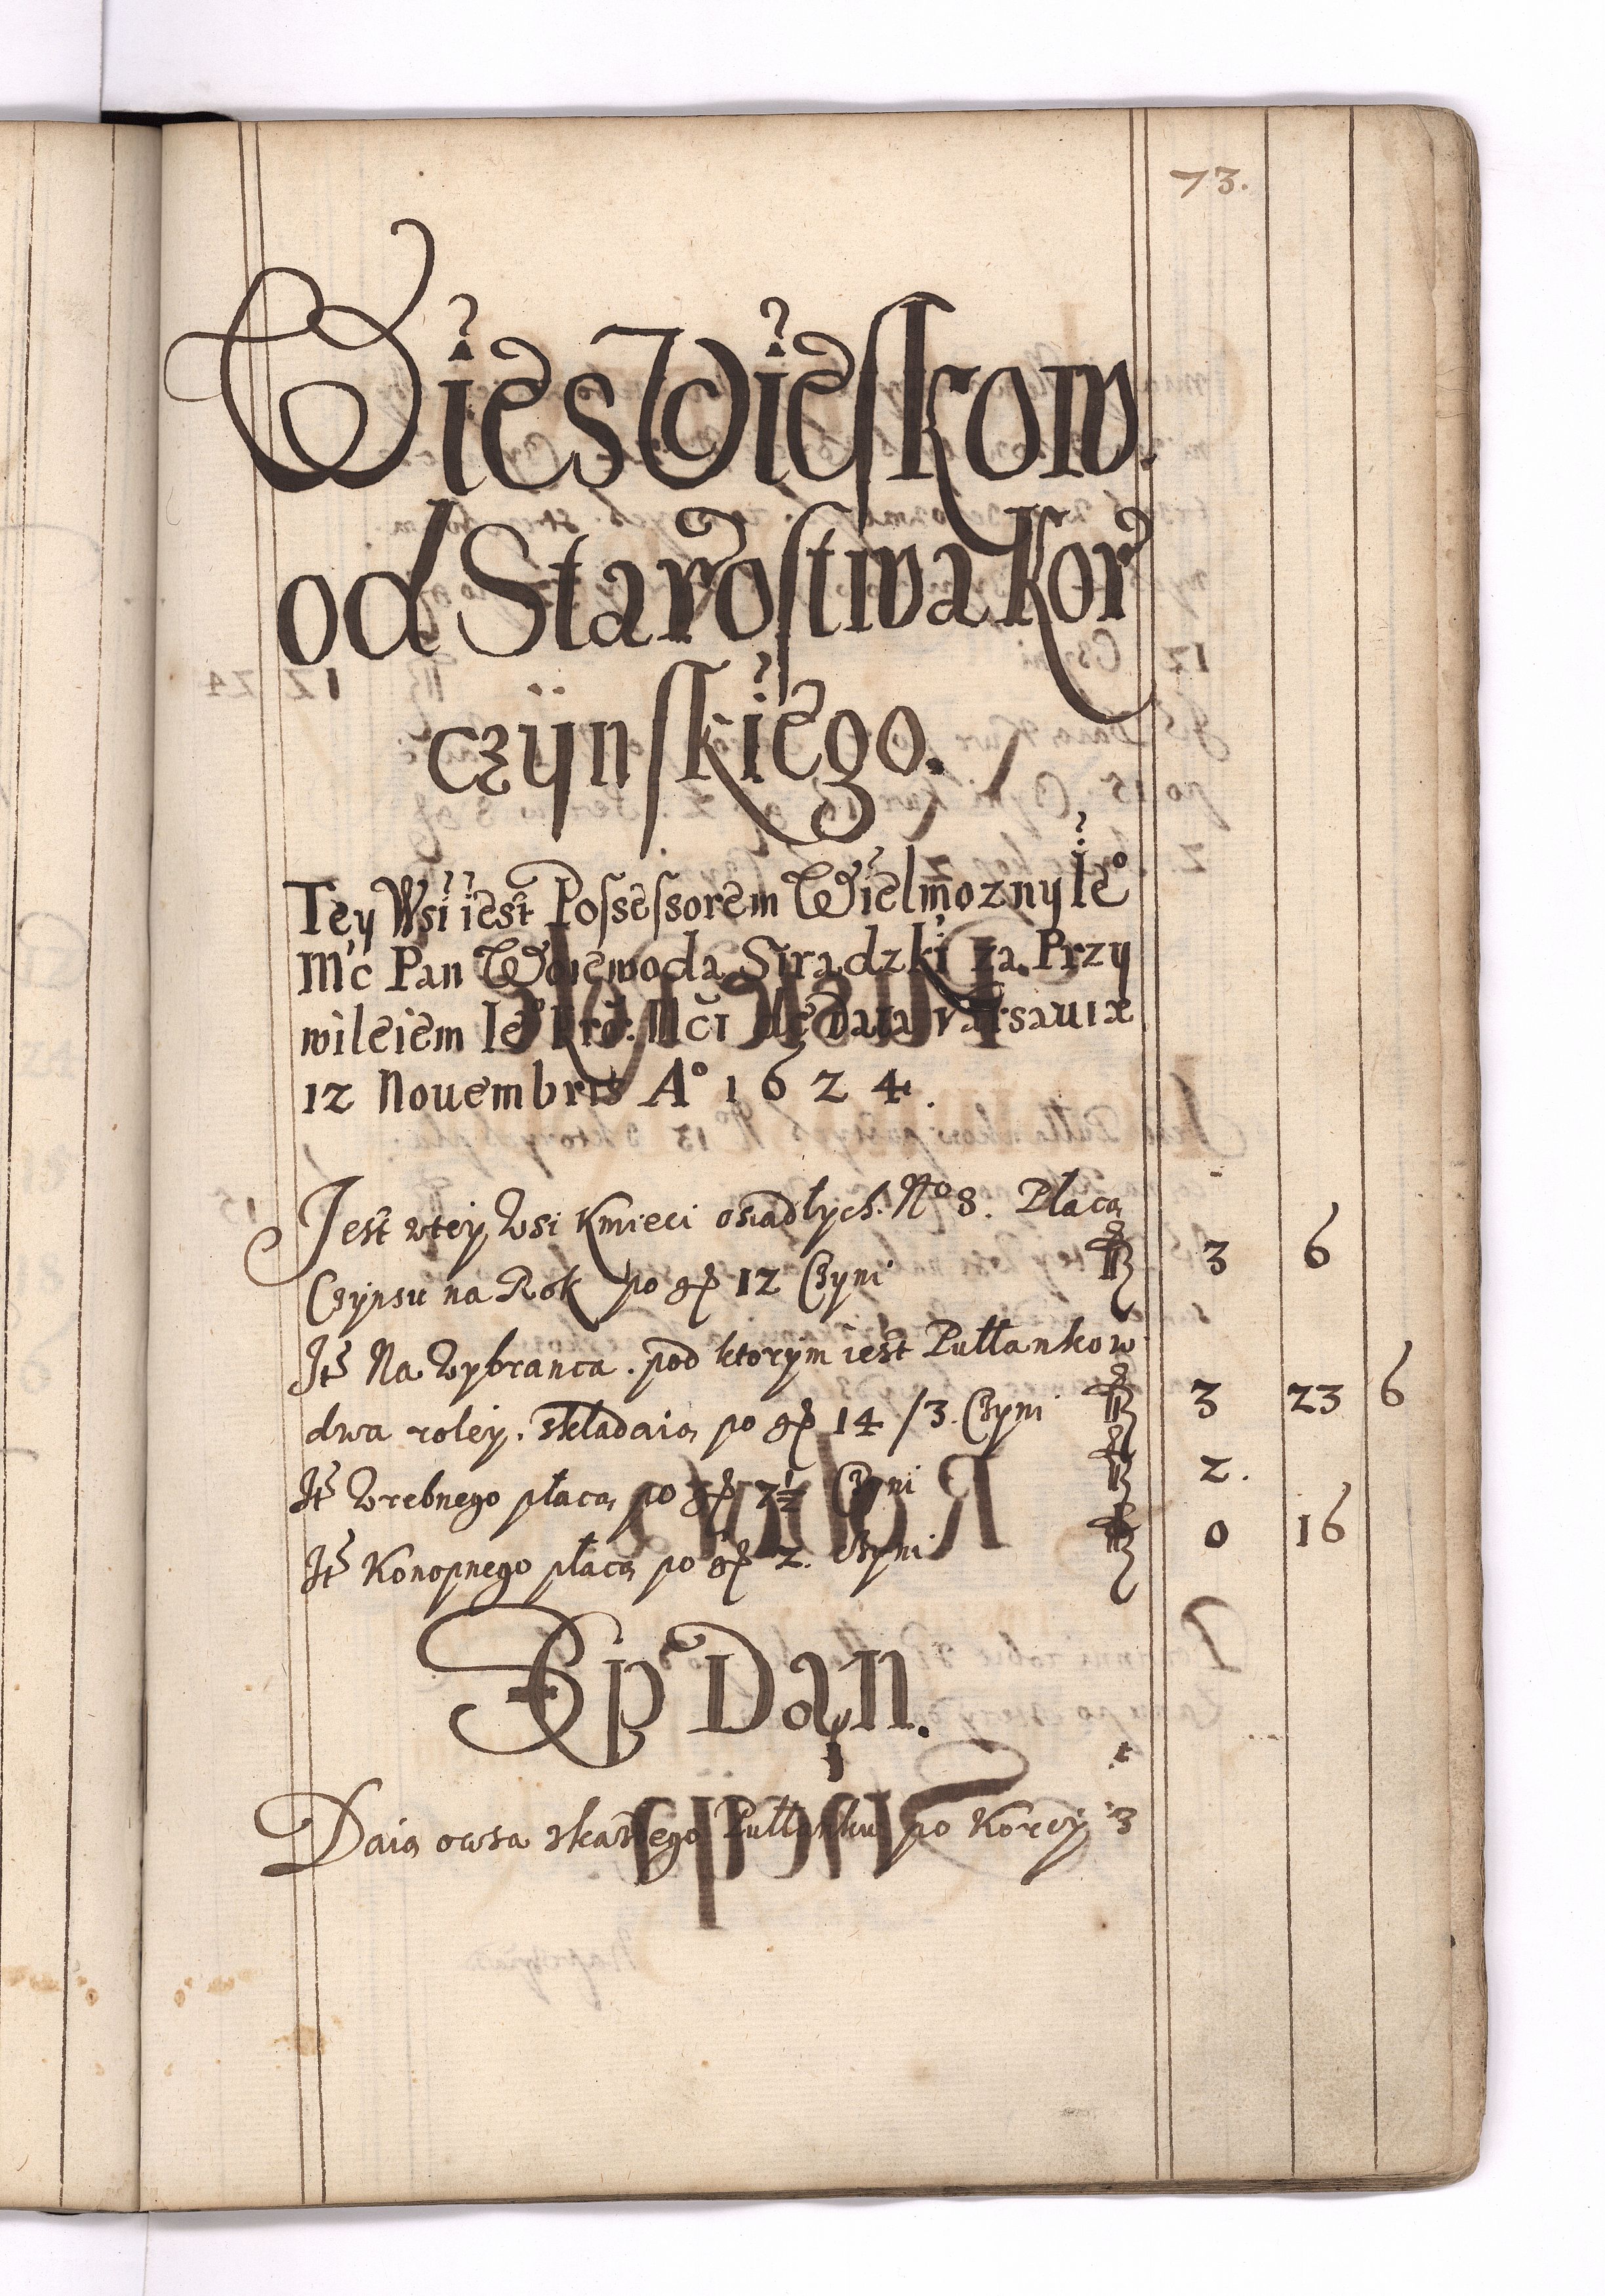 73.
Wies Wieskow.
od Starostwa Kor
czÿnskiego.
Tey Wsi iest Possessorem Wielmozny Ie°
Mc Pan Woiewoda Siradzki za Przy
wileiem Ie° Kro: Mci de Data Varsauiæ
12 Nouembris A° 1624.
Jest wtey Wsi Kmieci osiadłych. N° 8. Płacą
Czynsu na Rok po gr 12 Czyni 3 6
Jt Na Wybranca. pod ktorym iest Pułłankow
dwa roley. składaią po gr 14/3. Czyni 3 23 6
Jt Wrebnego płacą po gr 7½ Czyni 2.
Jt Konopnego płacą po gr 2. Czyni 0 16
Sep Dan.
Daią owsa zkazdego Pułłanku po Korcy 3